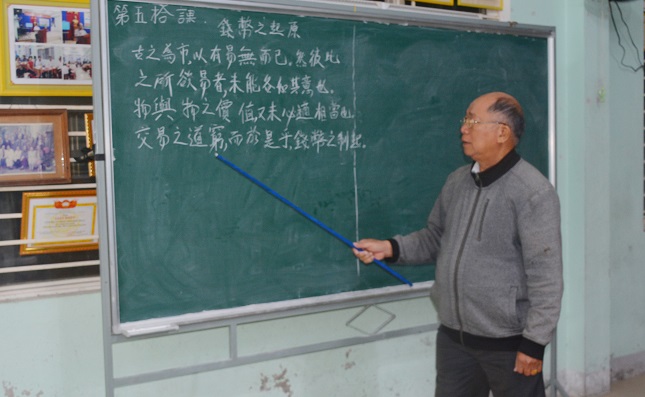 第五拾課. 錢幣之起原
古之為市,以有易無而已.然彼此
之所欲易者,未能各如其意也.
物與物之價值,又未必適相當也.
交易之道窮,而於是乎錢幣之制起.